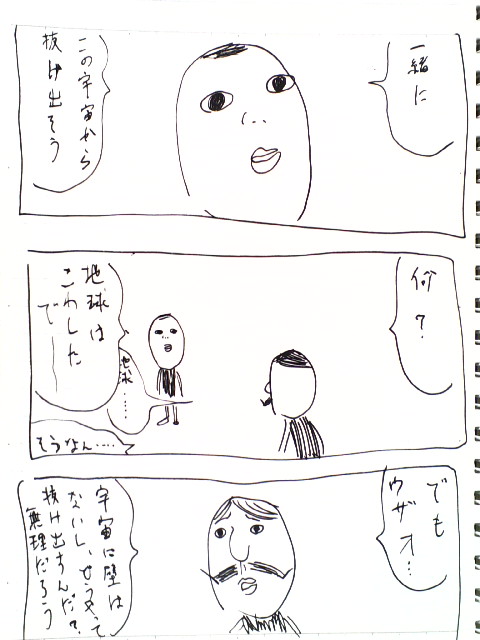 一緒に
この宇宙から
抜け出そう
何?
地球は
こわした
でー
地球……
そうなん……
でも
ウザオ…
宇宙に壁は
ないし、どうやって
抜け出すんだ?
無理だろう